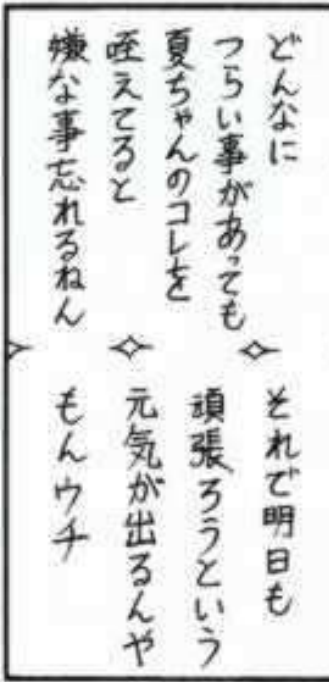 どんなに
つらい事があっても
夏ちゃんのコレを
咥えてると
嫌な事忘れるねん
それで明日も
頑張ろうという
元気が出るんや
もんウチ